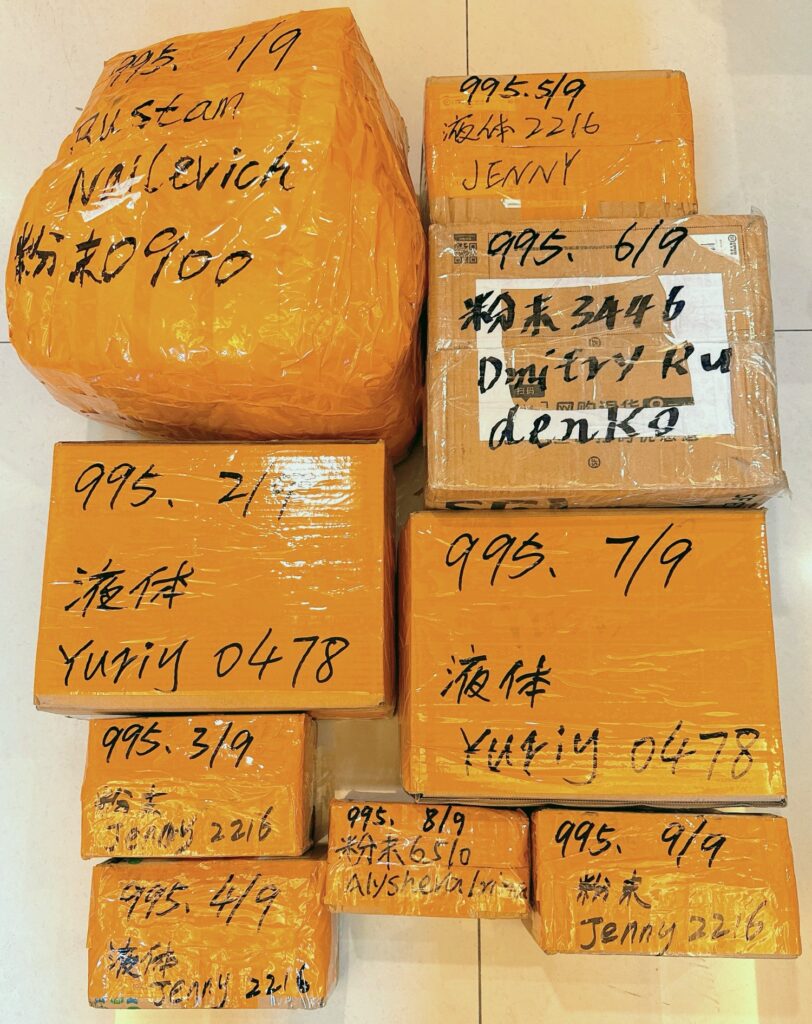 995. 1/9
Rustam
Nailevich
粉末0900
995.5/9
液体2216
JENNY
995. 6/9
粉末3446
Dmitry Ru
denko
995. 2/9
液体
Yuriy 0478
995. 7/9
液体
Yuriy 0478
995. 3/9
粉末
Jenny 2216
995. 4/9
液体
Jenny 2216
995. 8/9
粉末6510
995. 9/9
粉末
Jenny 2216